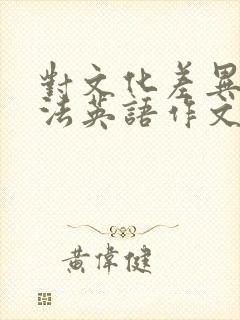 對文化差異
法英語作文
黃偉健